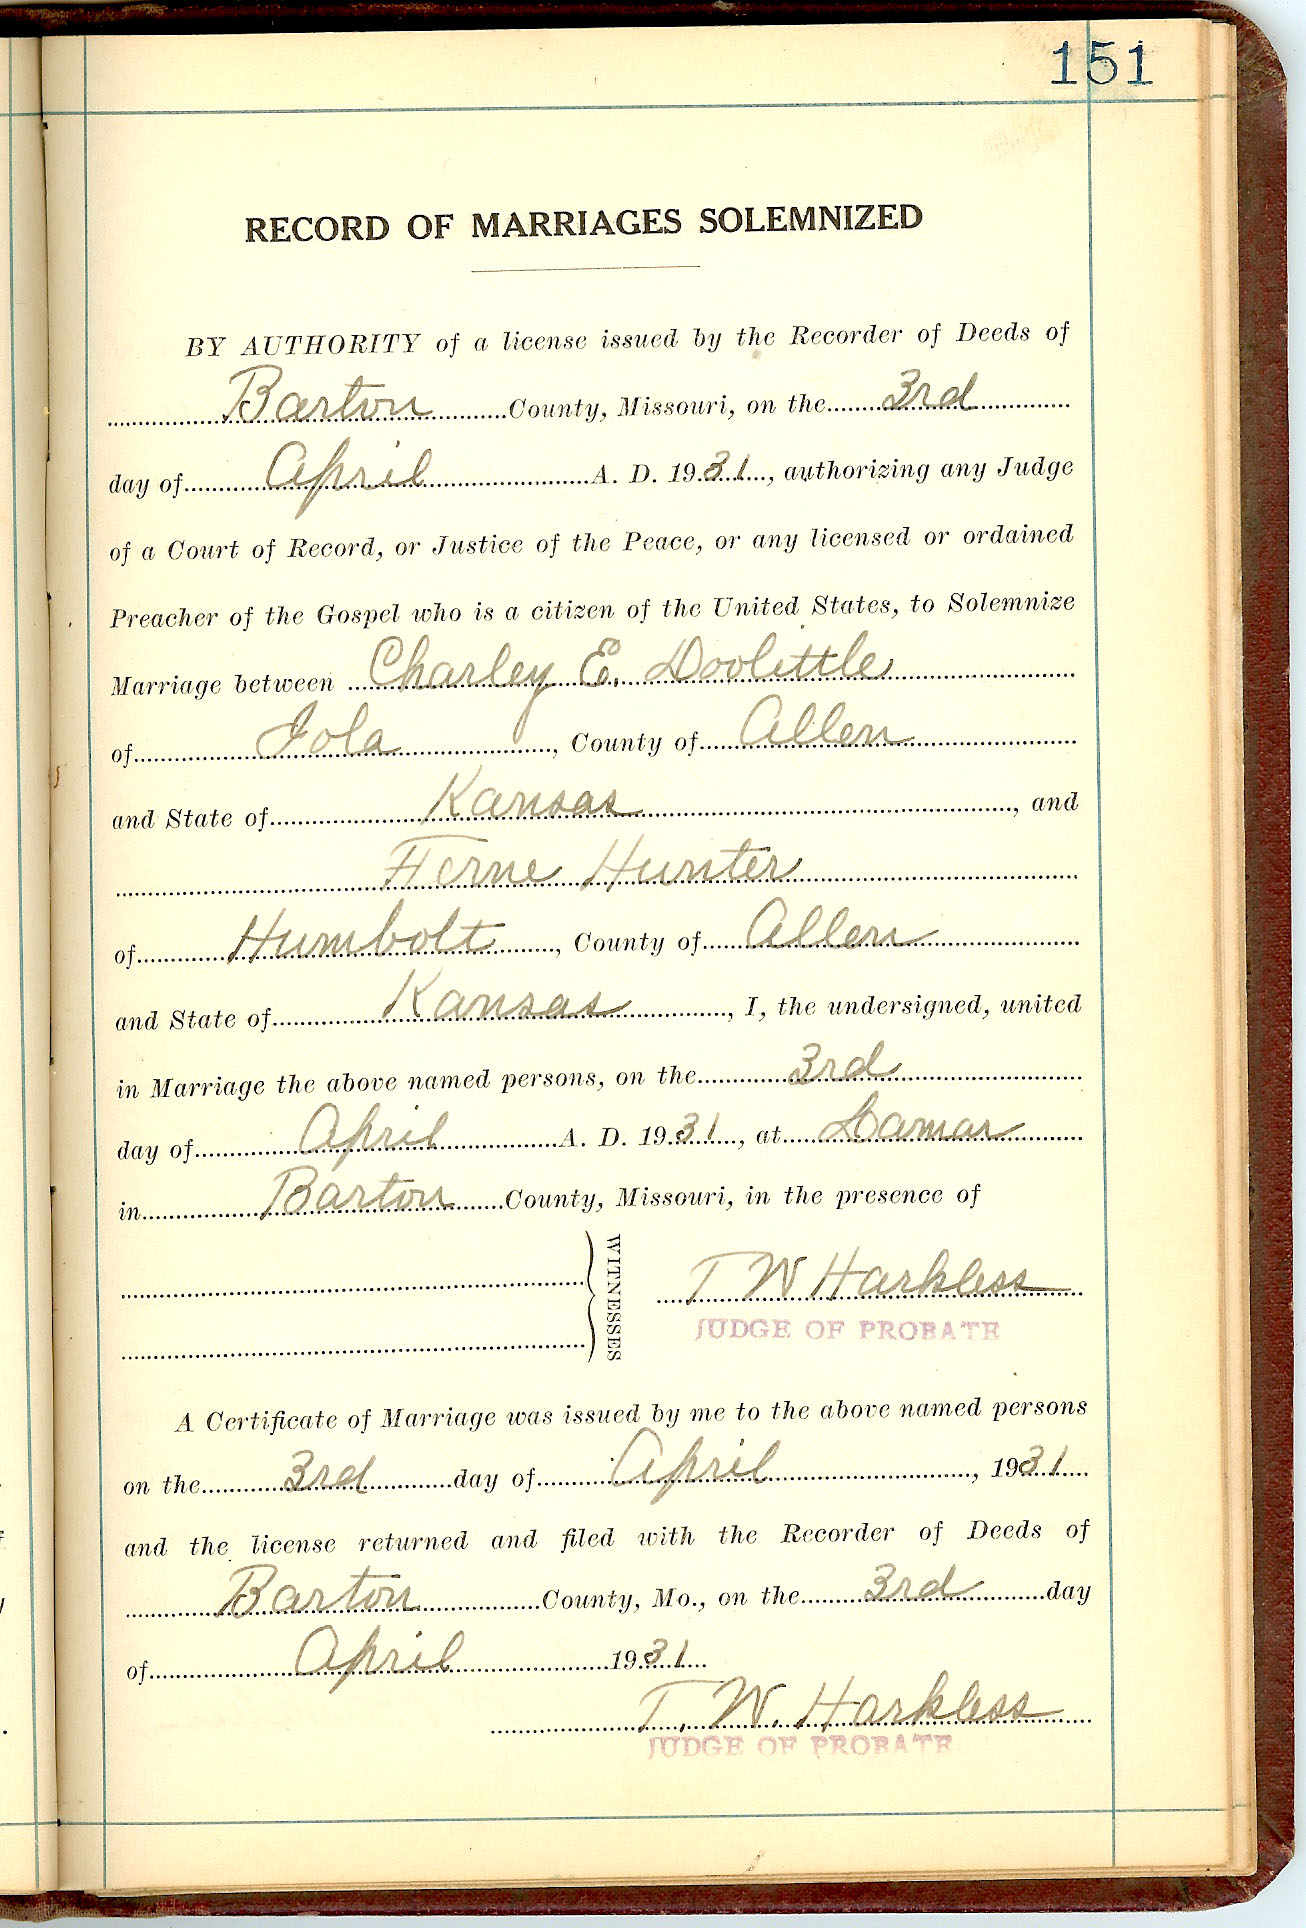 151
RECORD OF MARRIAGES SOLEMNIZED
BY AUTHORITY of a license issued by the Recorder of Deeds of
Barton County, Missouri, on the 3rd
day of April A. D. 1931, authorizing any Judge
of a Court of Record, or Justice of the Peace, or any licensed or ordained
Preacher of the Gospel who is a citizen of the United States, to Solemnize
Marriage between Charley E. Doolittle
of Iola, County of Allen
and State of Kansas, and
Ferne Hunter
of Humbolt, County of Allen
and State of Kansas, I, the undersigned, united
in Marriage the above named persons, on the 3rd
day of April A. D. 1931, at Lamar
in Barton County, Missouri, in the presence of
WITNESSES
T W Harkless
JUDGE OF PROBATE
A Certificate of Marriage was issued by me to the above named persons
on the 3rd day of April, 1931
and the license returned and filed with the Recorder of Deeds of
Barton County, Mo., on the 3rd day
of April 1931
T. W. Harkless
JUDGE OF PROBATE